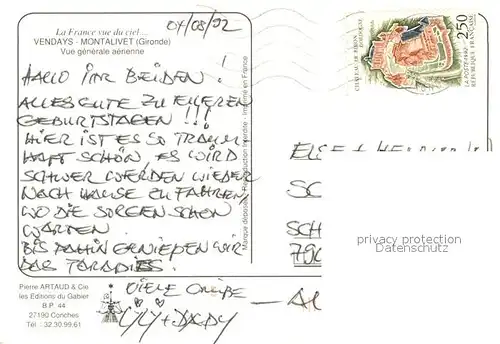 La France vue du ciel...
VENDAYS - MONTALIVET (Gironde)
Vue générale aérienne
04/08/92
CHATEAU DE BIRON
DORDOGNE
2,50
LA POSTE 1992
REPUBLIQUE FRANÇAISE
HALLO IHR BEIDEN!
ALLES GUTE ZU EUEREN
GEBURTSTAGEN!!!
HIER IST ES SO TRAUM
HAFT SCHÖN, ES WIRD
SCHWER WERDEN WIEDER
NACH HAUSE ZU FAHREN,
WO DIE SORGEN SCHON
WARTEN.
BIS DAHIN GENIEßEN WIR
DAS PARADIES.
VIELE GRÜßE
+ DADY
Marque déposée - Reproduction interdite - Imprimé en France
SC
SCH
790
privacy protection
Datenschutz
Pierre ARTAUD & Cie
les Editions du Gabier
B.P. 44
27190 Conches
Tél : 32.30.99.61